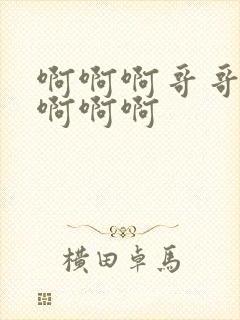 啊啊啊哥哥
啊啊啊
横田卓馬